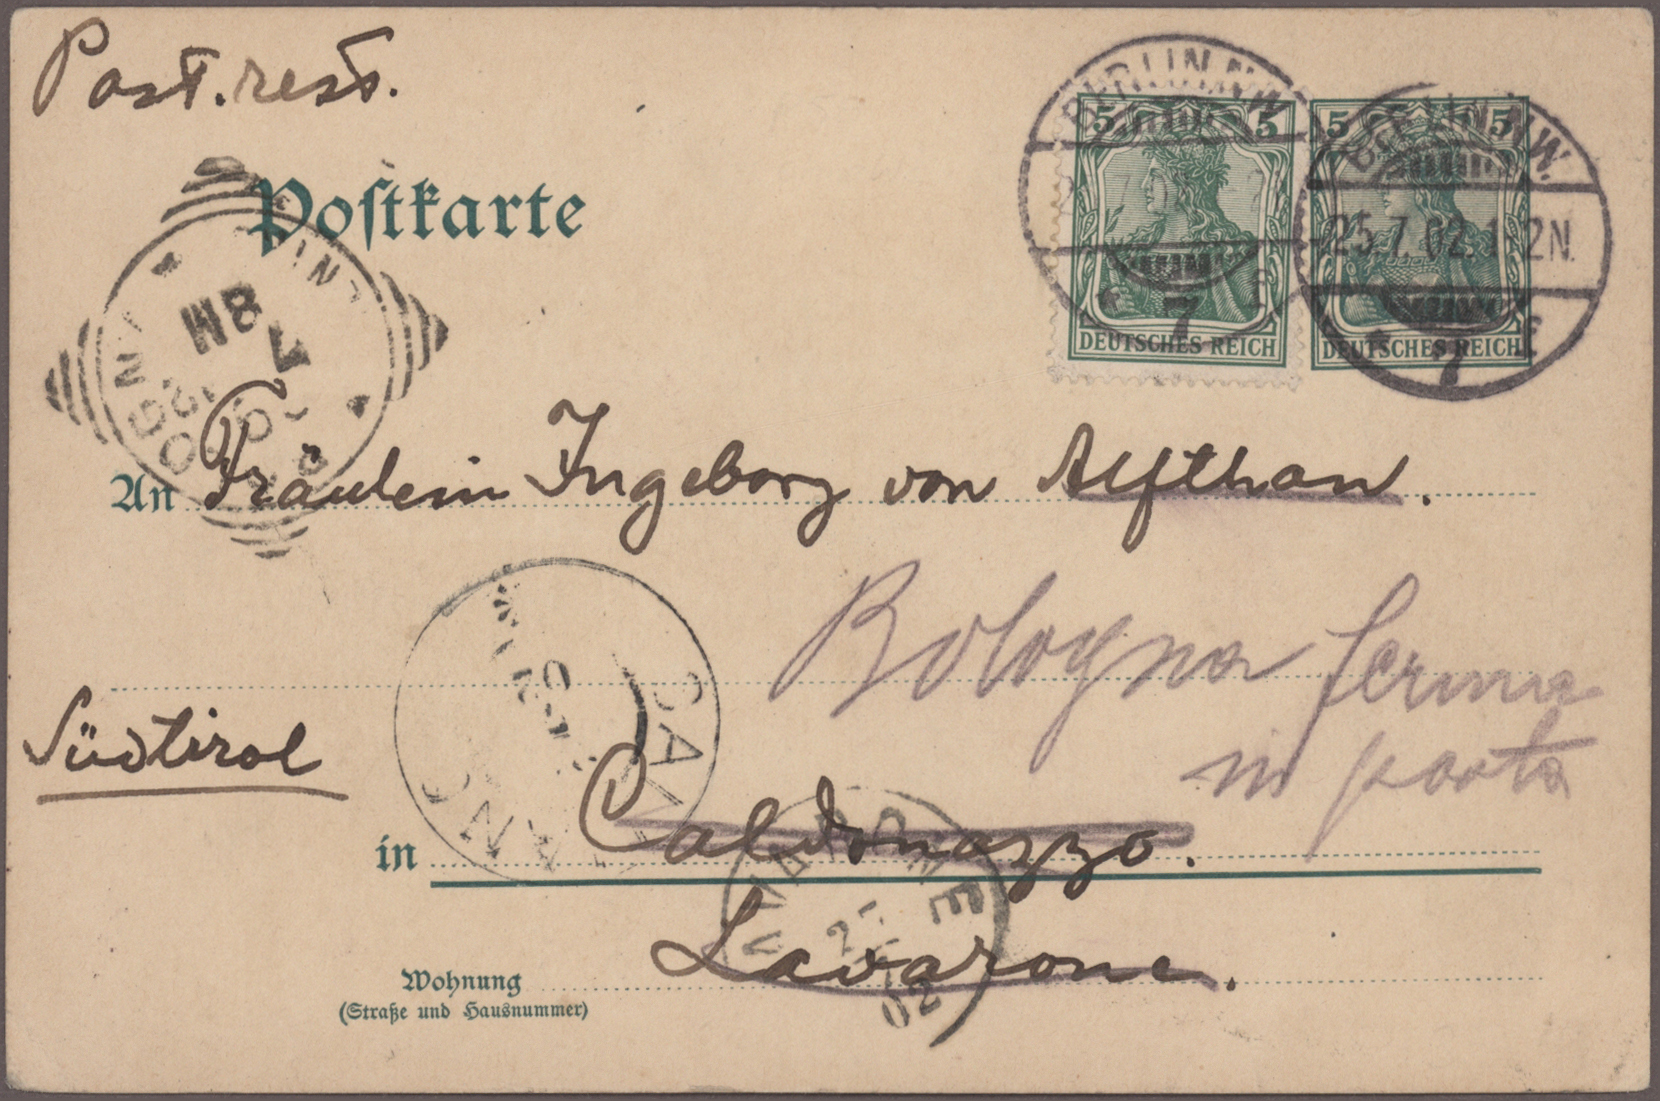 Post. rest.
Postkarte
BERLIN.N.W.
7
5 5
DEUTSCHES REICH
BERLIN.N.W.
25.7.02.1-2N.
7
5 5
DEUTSCHES REICH
8M
An Fräulein Ingeborg von Alfthan.
Bologna ferma
in posta
Südtirol
in Caldonazzo.
Lavarone.
02
Wohnung
(Straße und Hausnummer)